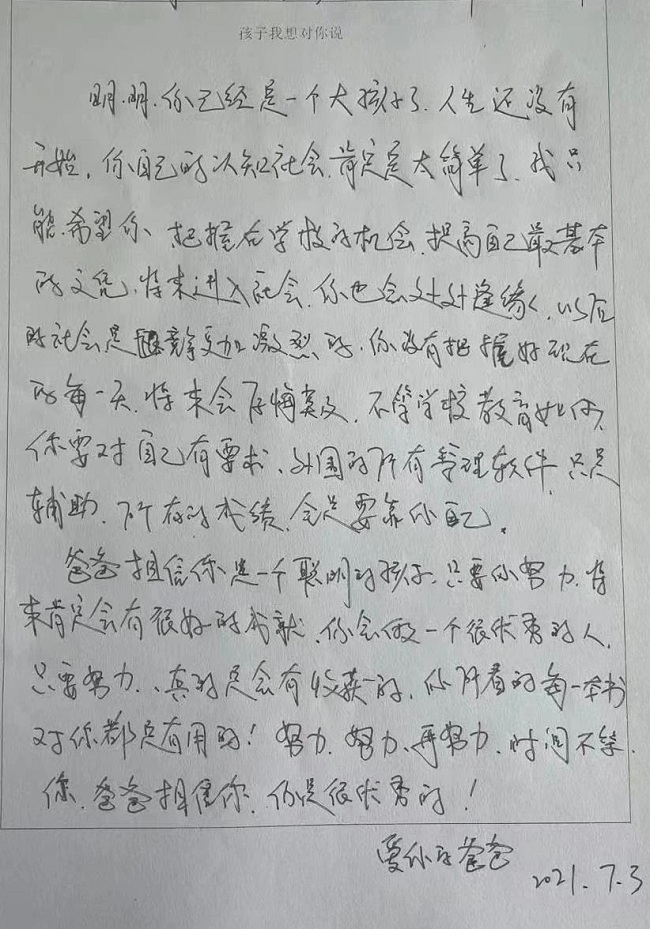 孩子我想对你说
明明.你已经是一个大孩子了.人生还没有
开始.你自己的认知社会.肯定是太简单了.我只
能希望你.把握在学校的机会.提高自己最基本
的文凭.将来进入社会.你也会处处逢缘.以后
的社会是竞争更加激烈的.你没有把握好现在
的每一天.将来会后悔莫及.不管学校教育如何,
你要对自己有要求.外围的所有管理软件.只是
辅助.所有的成绩.全是要靠你自己。
爸爸相信你是一个聪明的孩子.只要你努力.将
来肯定会有很好的成就.你会做一个很优秀的人.
只要努力、真的是会有收获的.你所看的每一本书
对你都是有用的!努力.努力、再努力.时间不等.
你.爸爸相信你.你是很优秀的!
爱你的爸爸
2021.7.3